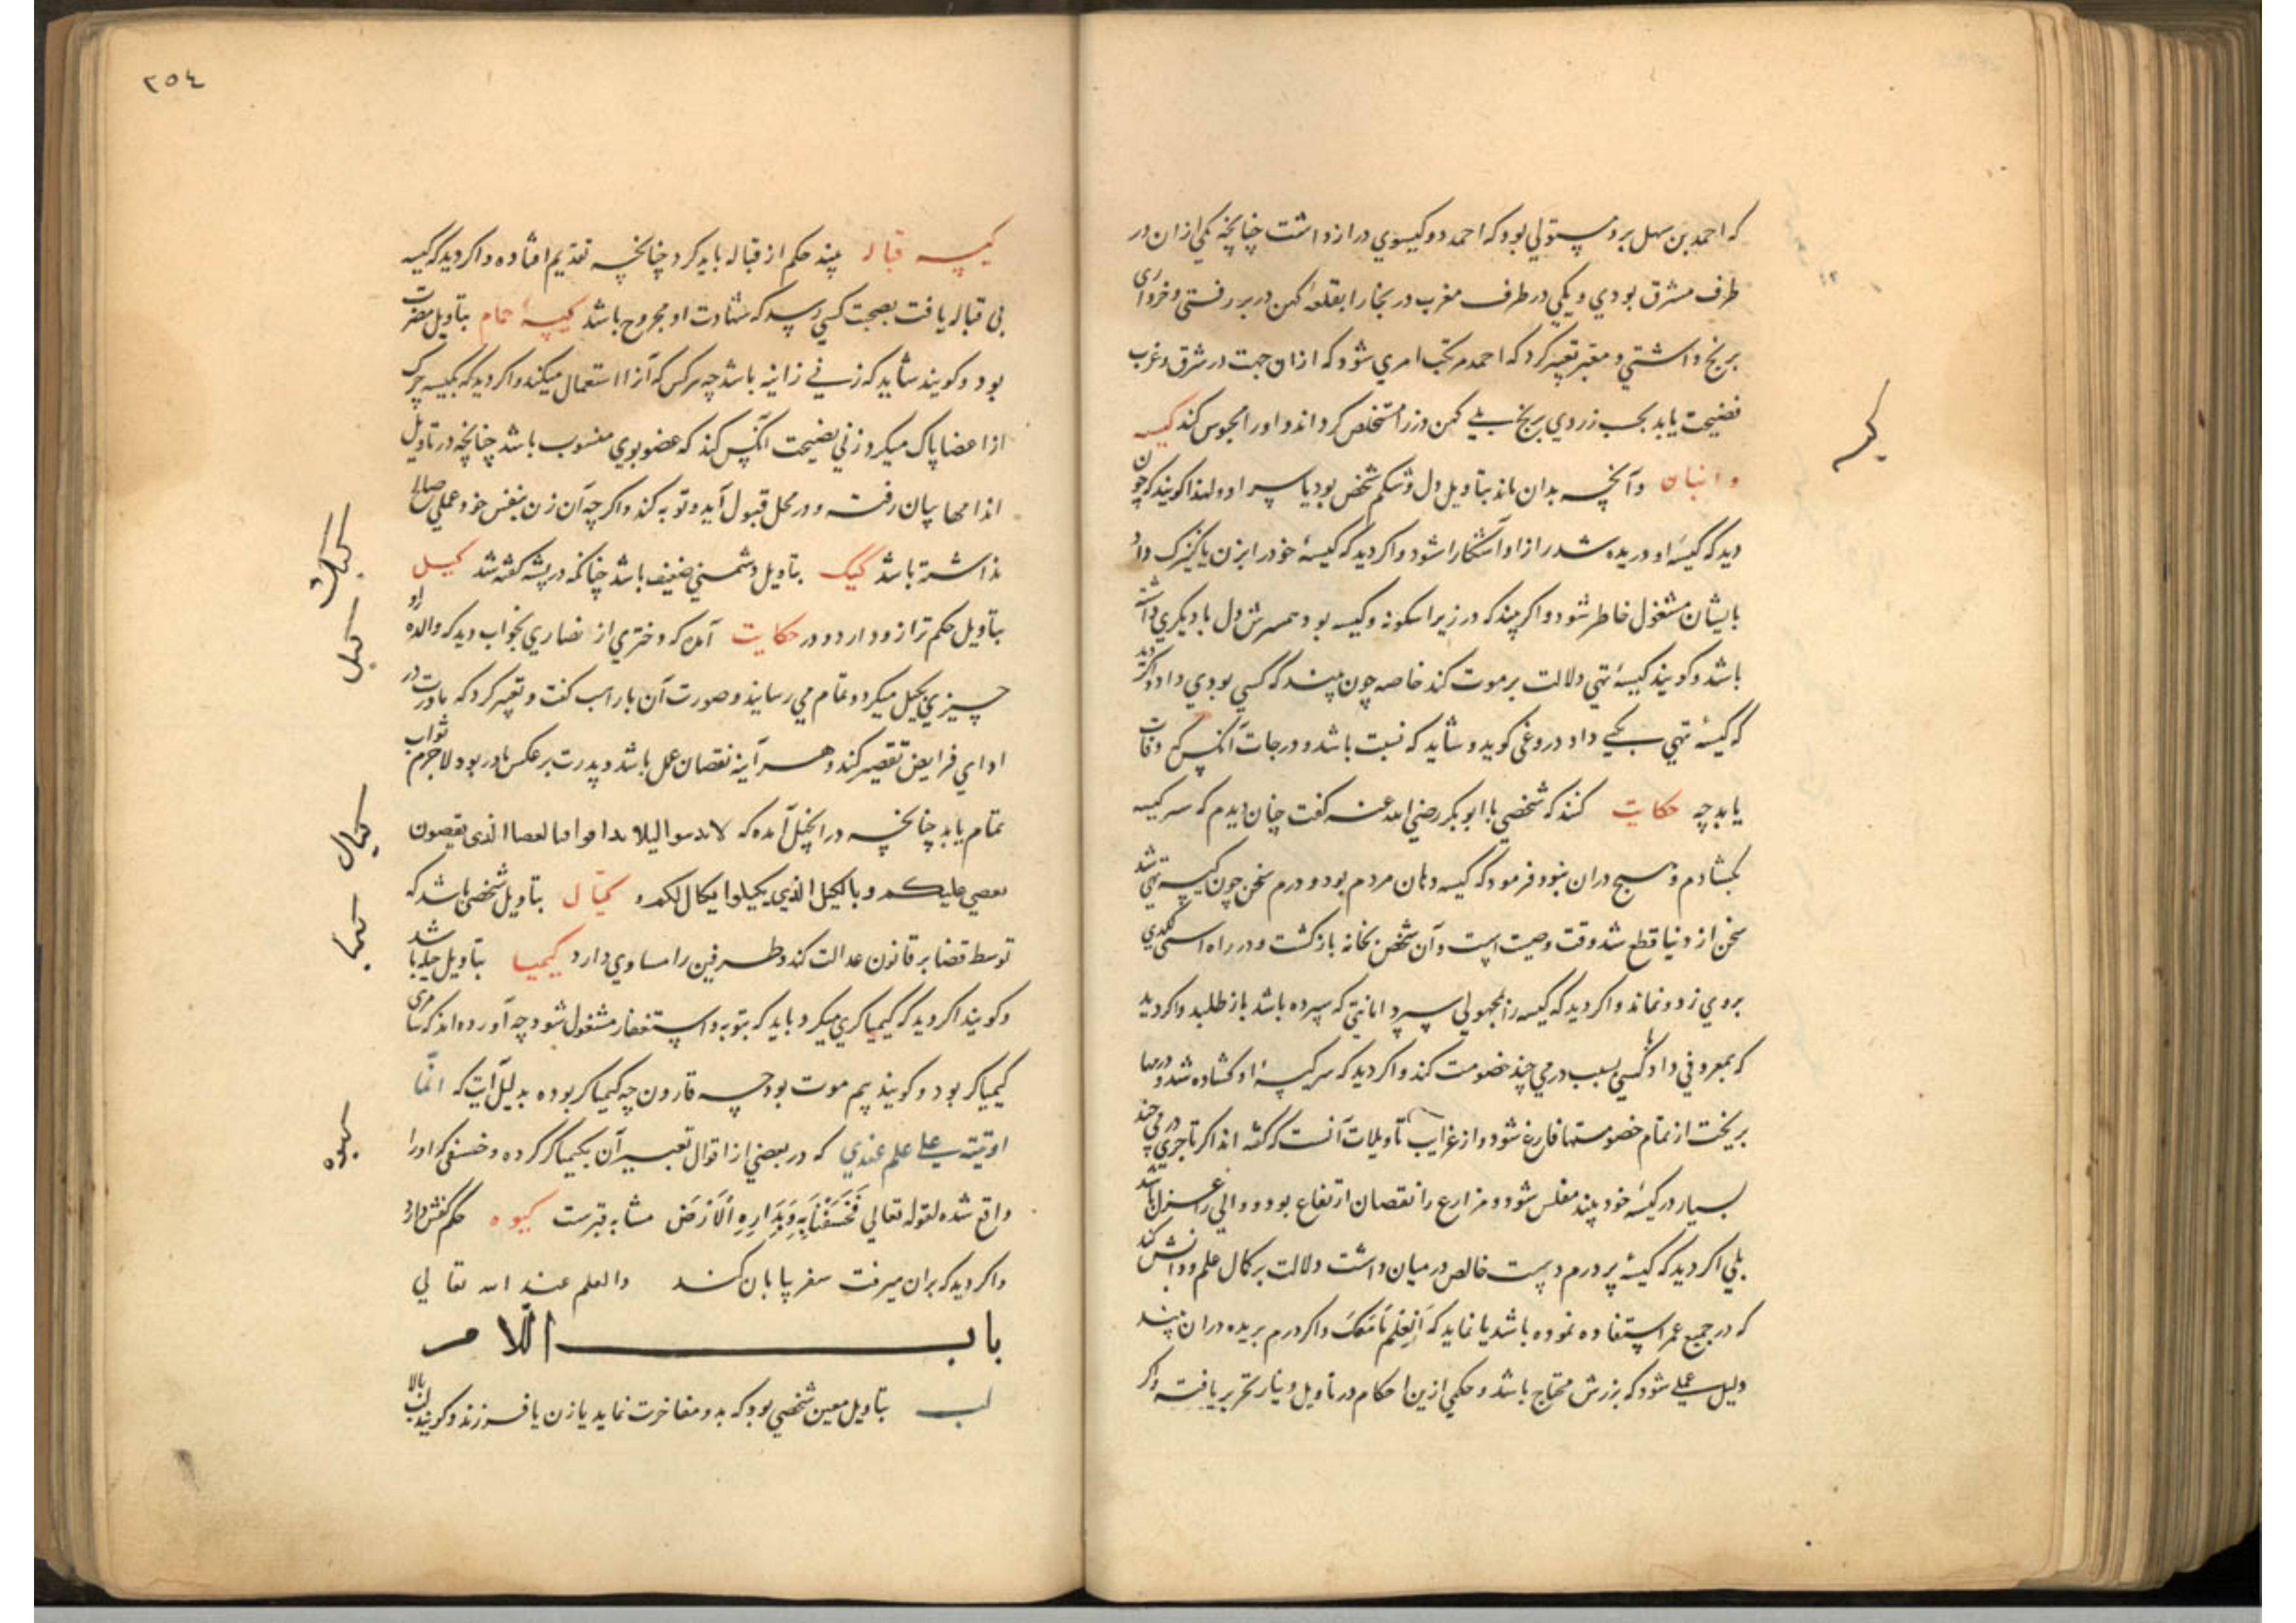 که احمد بن سهل برو مستولی بود که احمد دو کیسوی دراز داشت چنانچه یکی ازان در
طرف مشرق بودی و یکی در طرف مغرب در بخارا بقلعهٔ کهن در بر رفتی و خرواری
برنج داشتی و معبر تعبیر کرد که احمد مرتکب امری شود که ازان جهت در شرق و غرب
فضیحت یابد بحسب زردی برنج کهن دزرا مستخلص کرداند و اورا محبوس کند کیسه
و انبان وآنچه بدان ماند بتاویل دل و شکم شخص بود یا سر او و لهذا کویند که چون
دید که کیسهٔ او دریده شد راز او آشکارا شود و اکر دید که کیسهٔ خود را بزن یا کنیزک داد
بایشان مشغول خاطر شود و اکر بیند که در زیر اسکونه و کیسه بود همسرش دل با دیکری داشته
باشد و کویند کیسهٔ تهی دلالت بر موت کند خاصه چون بیند که کسی بودی داد و اکر دید
که کیسهٔ تهی بکسی داد دروغی کوید و شاید که نسبت باشد و درجات آنکس وفات
یابد چه حکایت کنند که شخصی با ابو بکر رضی الله عنه کفت چنان دیدم که سر کیسه
بکشادم و هیچ دران نبود فرمود که کیسه دهان مردم بود و درم سخن چون کیسه تهی شد
سخن از دنیا قطع شد وقت وصیت است وآن شخص بخانه بازکشت و در راه استری لکدی
بروی زد و نماند و اکر دید که کیسه را بمجهولی سپرد امانتی که سپرده باشد باز طلبد و اکر دید
که بمعروفی داد با کسی بسبب درمی چند خصومت کند و اکر دید که سر کیسهٔ او کشاده شد و درمها
بریخت از تمام خصومتها فارغ شود و از غرایب تاویلات آنست که کفته اند اکر تاجری درمی چند
بسیار در کیسهٔ خود بیند مفلس شود و مزارع را نقصان ارتفاع بود و والی را عزل باشد
بلی اکر دید که کیسهٔ پر درم درست خالص در میان داشت دلالت بر کمال علم و دانش کند
که در جمیع عمر استفاده نموده باشد یا نماید که اَلعِلمُ مَا مَعَکَ و اکر درم بریده دران بیند
دلیل علمی شود که بزرش محتاج باشد و حکمی ازین احکام در تاویل دینار تحریر یافته واکر
کیسه
٢٥٤
کیسه قباله بیند حکم از قباله باید کرد چنانچه تقدیم افتاده و اکر دید که کیسه
بی قباله یافت بصحبت کسی رسد که شهادت او مجروح باشد کیسهٔ حمام بتاویل مضرت
بود و کویند شاید که زنی زانیه باشد چه هرکس که آنرا استعمال میکند و اکر دید که بکیسه چرک
از اعضا پاک میکرد زنی نصیحت آنکس کند که عضو بوی منسوب باشد چنانچه در تاویل
اندامها بیان رفت و در محل قبول آید و توبه کند و اکر چه آن زن بنفس خود عملی صالح
نداشته باشد کیک بتاویل دشمنی ضعیف باشد چنانکه در پشه کفته شد کیل
بتاویل حکم ترازو دارد و در حکایت آمده که دختری از نصاری بخواب دید که والدهٔ او
چیزی بکیل میکرد و تمام می رسانید و صورت آن با راهب کفت و تعبیر کرد که مادرت در
ادای فرایض تقصیر کند و هر آینه نقصان عمل باشد و پدرت بر عکس مادر بود لاجرم ثواب
تمام یابد چنانچه در انجیل آمده که
وبالکیل الذی یکیلوا یکال لکم کیّال بتاویل شخصی باشد که
توسط قضا بر قانون عدالت کند و طرفین را مساوی دارد کیمیا بتاویل حیله باشد
و کویند اکر دید که کیمیا کری میکرد باید که بتوبه و استغفار مشغول شود چه آورده اند که سامری
کیمیا کر بود و کویند بیم موت بود چه قارون چه کیمیا کر بوده بدلیل آیت که انّما
اوتیته علی علم عندی که در بعضی از اقوال تعبیر آن بکیمیا کر کرده و خسفی که اورا
واقع شده لقوله تعالی فَخَسَفْنَا بِهِ وَبِدَارِهِ الْاَرْضَ مشابه قبرست کیوه حکم کفش دارد
و اکر دید که بران میرفت سفر بیابان کند والعلم عند الله تعالی
باب اللام
لب بتاویل معین شخصی بود که بدو مفاخرت نماید یا زن یا فرزند و کویند لب بالا
کیک
کیل
کیال
کیمیا
کیوه